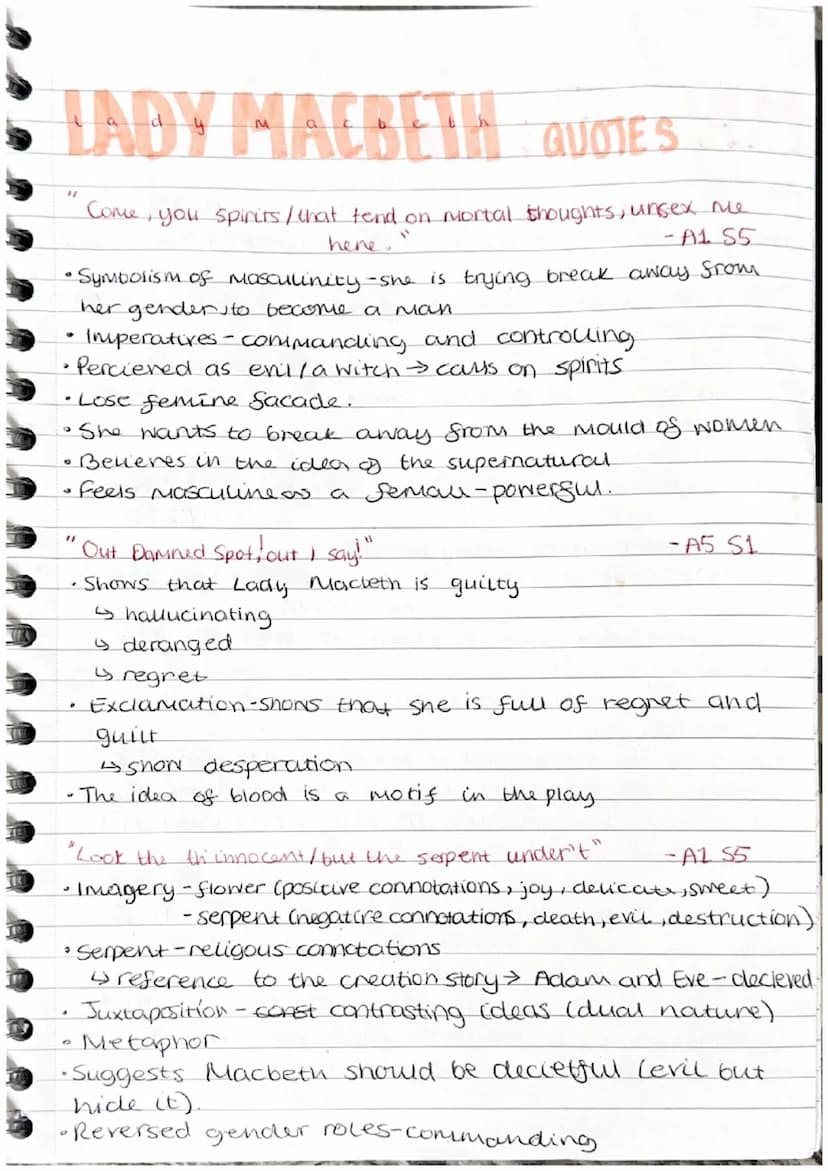 LADY MACBETH QUOTES
lady macbeth
"Come, you spirits/that tend on mortal thoughts, unsex me
here." -A1 S5
• Symbolism of masculinity - she is trying break away from
her gender, to become a man
• Imperatives - commanding and controlling
• Percieved as evil/a witch → calls on spirits
• Lose femine facade.
• She wants to break away from the mould of women
• Believes in the idea of the supernatural
• feels masculine as a female - powerful.
"Out Damned Spot, out I say!" -A5 S1
• Shows that Lady Macbeth is guilty
↳ hallucinating
↳ deranged
↳ regret
• Exclamation - shows that she is full of regret and
guilt
↳ show desperation
• The idea of blood is a motif in the play
"Look the innocent/but the serpent under't" -A1 S5
• Imagery - flower (positive connotations, joy, delicate, sweet)
- serpent (negative connotations, death, evil, destruction)
• Serpent - religous connotations
↳ reference to the creation story → Adam and Eve - decieved
• Juxtaposition - const contrasting ideas (dual nature)
• Metaphor
• Suggests Macbeth should be decietful (evil but
hide it).
• Reversed gender roles - commanding